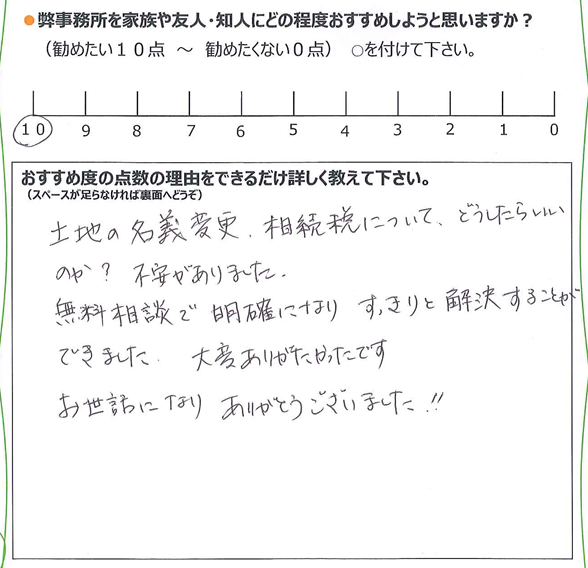 ●弊事務所を家族や友人・知人にどの程度おすすめしようと思いますか？
（勧めたい１０点　～　勧めたくない０点）　○を付けて下さい。
10 9 8 7 6 5 4 3 2 1 0
おすすめ度の点数の理由をできるだけ詳しく教えて下さい。
（スペースが足らなければ裏面へどうぞ）
土地の名義変更、相続税について、どうしたらいい
のか？ 不安がありました。
無料相談で 明確になり すっきりと解決することが
できました。 大変ありがたかったです
お世話になり ありがとうございました!!